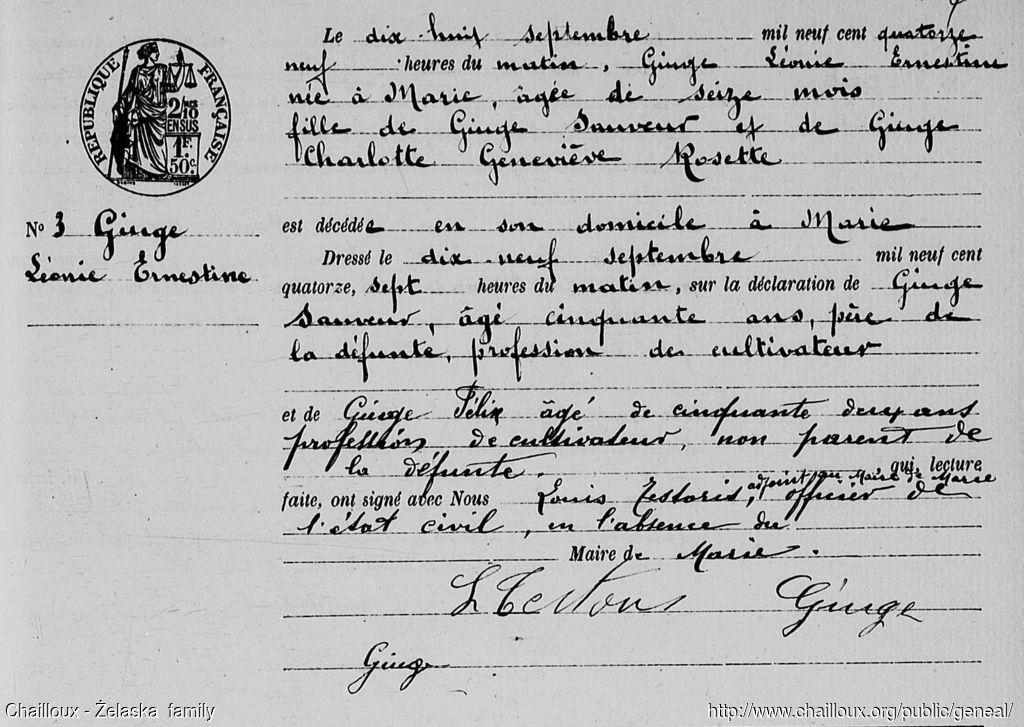 RÉPUBLIQUE FRANÇAISE
2/10
EN SUS
1F.
50c.
Le dix-huit septembre mil neuf cent quatorze
neuf heures du matin, Giuge Léonie Ernestine
née à Marie, âgée de seize mois
fille de Giuge Sauveur et de Giuge
Charlotte Geneviève Rosette
No 3 Giuge
Léonie Ernestine
est décédée en son domicile à Marie
Dressé le dix-neuf septembre mil neuf cent
quatorze, sept heures du matin, sur la déclaration de Giuge
Sauveur, âgé cinquante ans, père de
la défunte, profession de cultivateur
et de Giuge Félix âgé de cinquante deux ans
profession de cultivateur, non parent de
la défunte. qui, lecture
faite, ont signé avec Nous Louis Testoris, adjoint au Maire de Marie officier de
l'état civil, en l'absence du
Maire de Marie.
L Testoris Giuge
Giuge
Chailloux - Żelaska family http://www.chailloux.org/public/geneal/